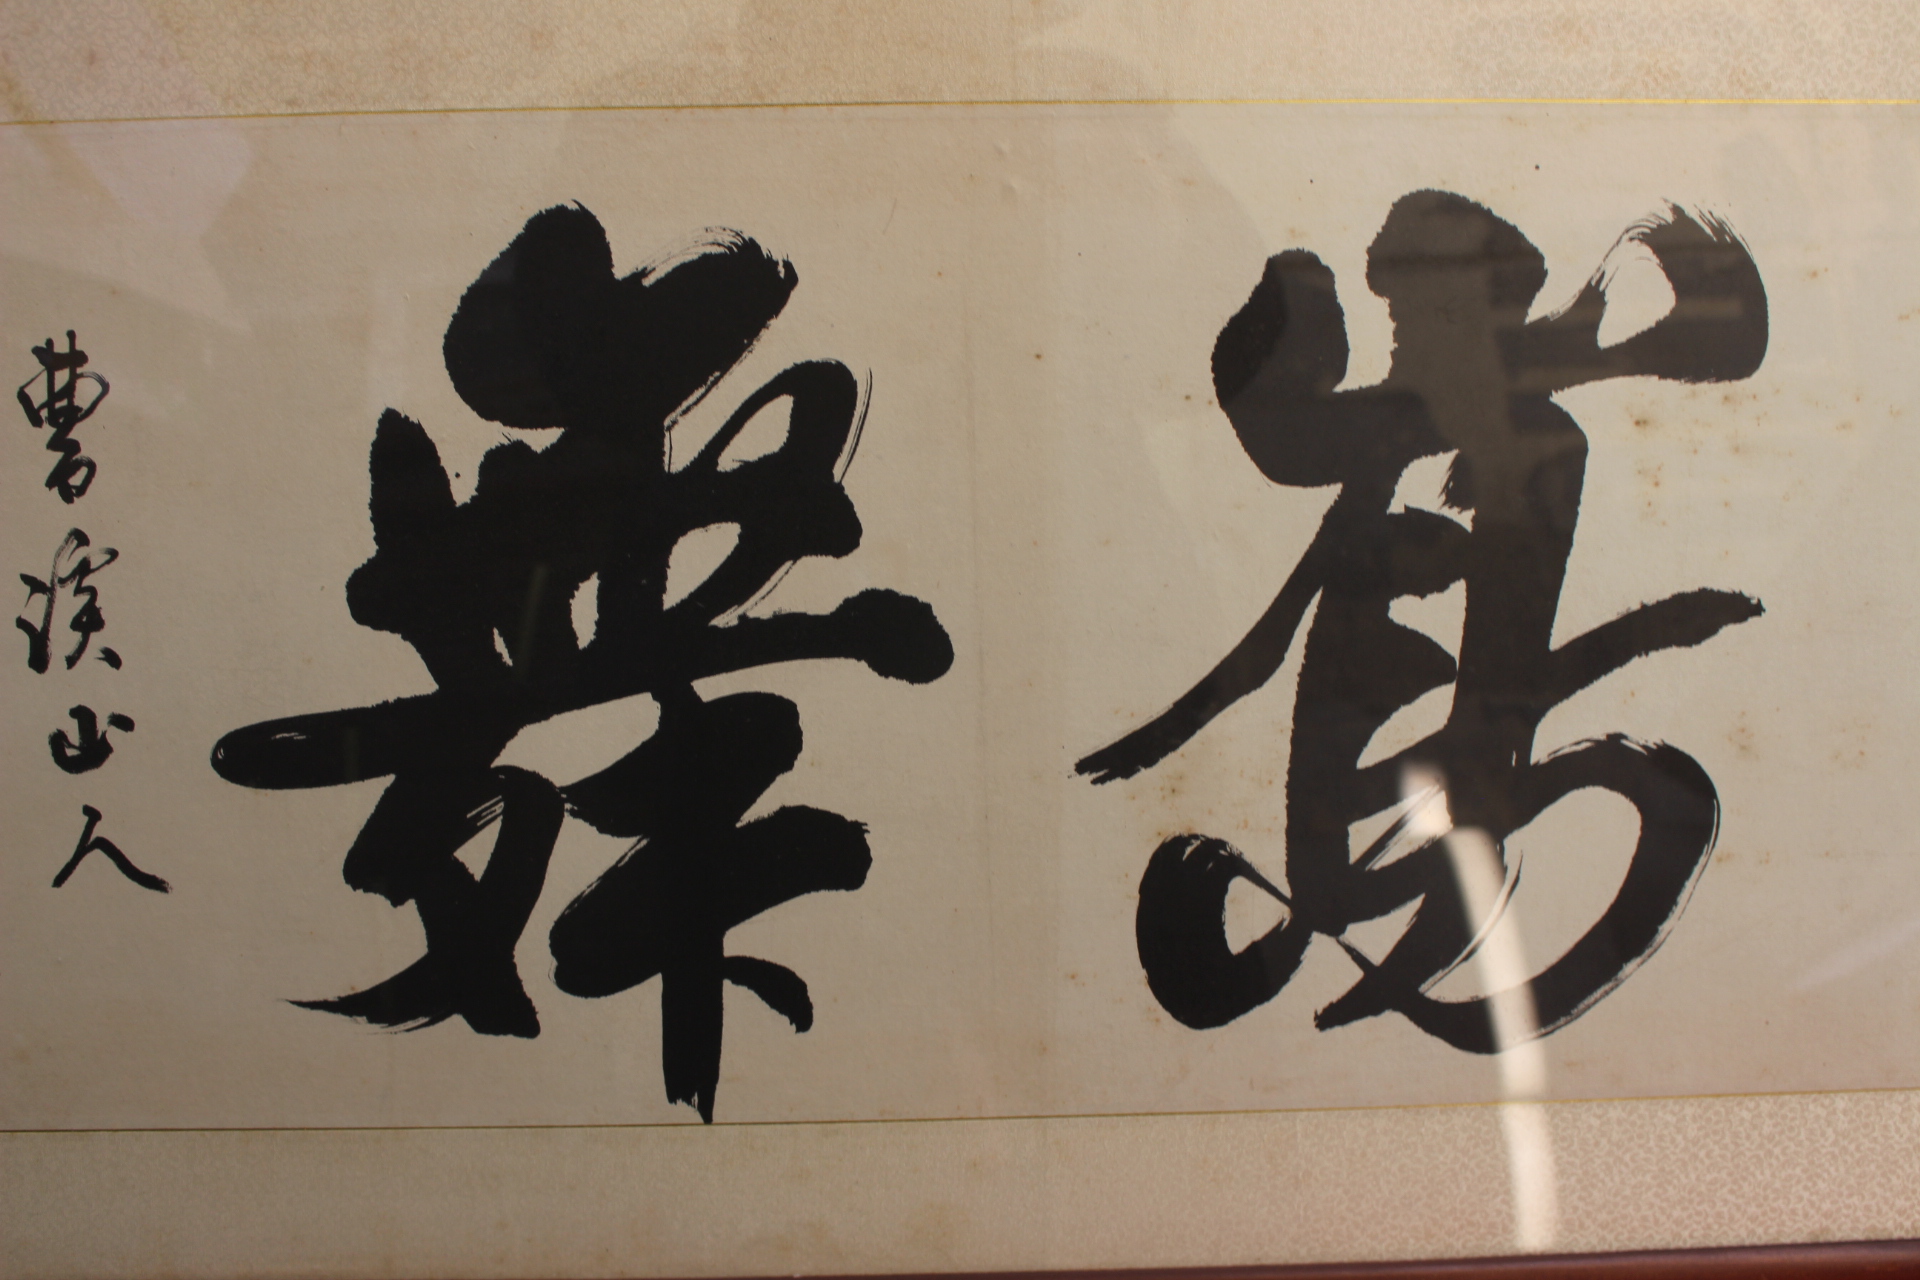 舞
曹溪山人